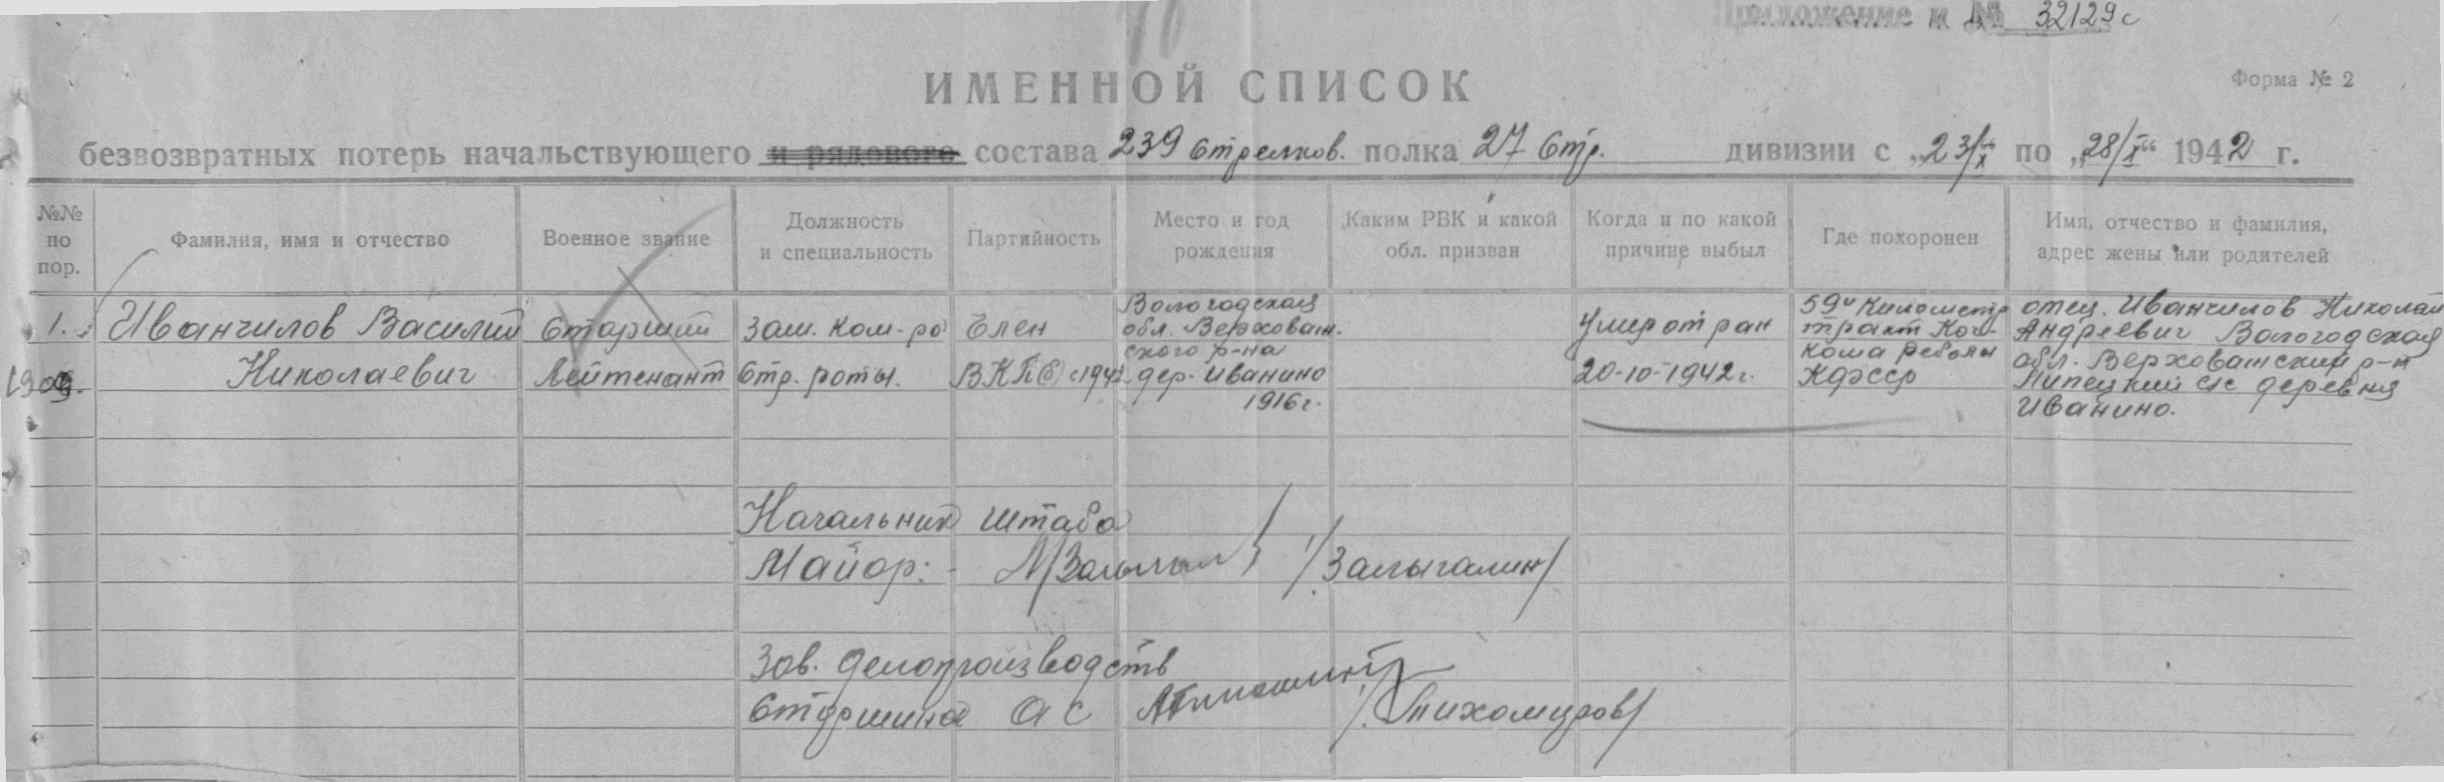 Приложение к № 32129с
ИМЕННОЙ СПИСОК
Форма № 2
безвозвратных потерь начальствующего и рядового состава 239 Стрелков. полка 27 Стр. дивизии с „23/X“ по „28/X“ 1942 г.
№№ по пор.
Фамилия, имя и отчество
Военное звание
Должность и специальность
Партийность
Место и год рождения
Каким РВК и какой обл. призван
Когда и по какой причине выбыл
Где похоронен
Имя, отчество и фамилия, адрес жены или родителей
1.
Иванчилов Василий
Николаевич
Старший
Лейтенант
Зам. Ком-ра
Стр. роты.
Член
ВКП(б) с 1942
Вологодская
обл. Верховаж.
ского р-на
дер. Иванино
1916 г.
Умер от ран
20-10-1942 г.
59й километр
тракт Коч-
кома Реболы
КФССР
отец. Иванчилов Николай
Андреевич Вологодская
обл. Верховажский р-н
Липецкий с/с деревня
Иванино.
Начальник штаба
Майор: /Залыгалин/
Зав. делопроизводств
Старшина а с /Тихомиров/